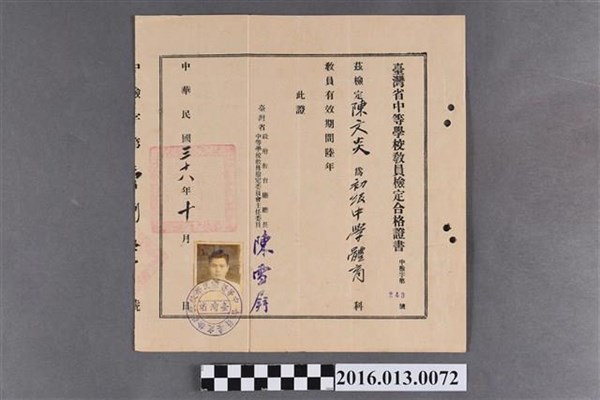 臺灣省中等學校教員檢定合格證書
中檢字第249號
茲檢定陳文炎為初級中學體育科
教員有效期間陸年
此證
臺灣省政府教育廳廳長
中等學校教員檢定委員會主任委員
陳雪屏
中華民國三十八年十月 日
中檢字第 號
2016.013.0072